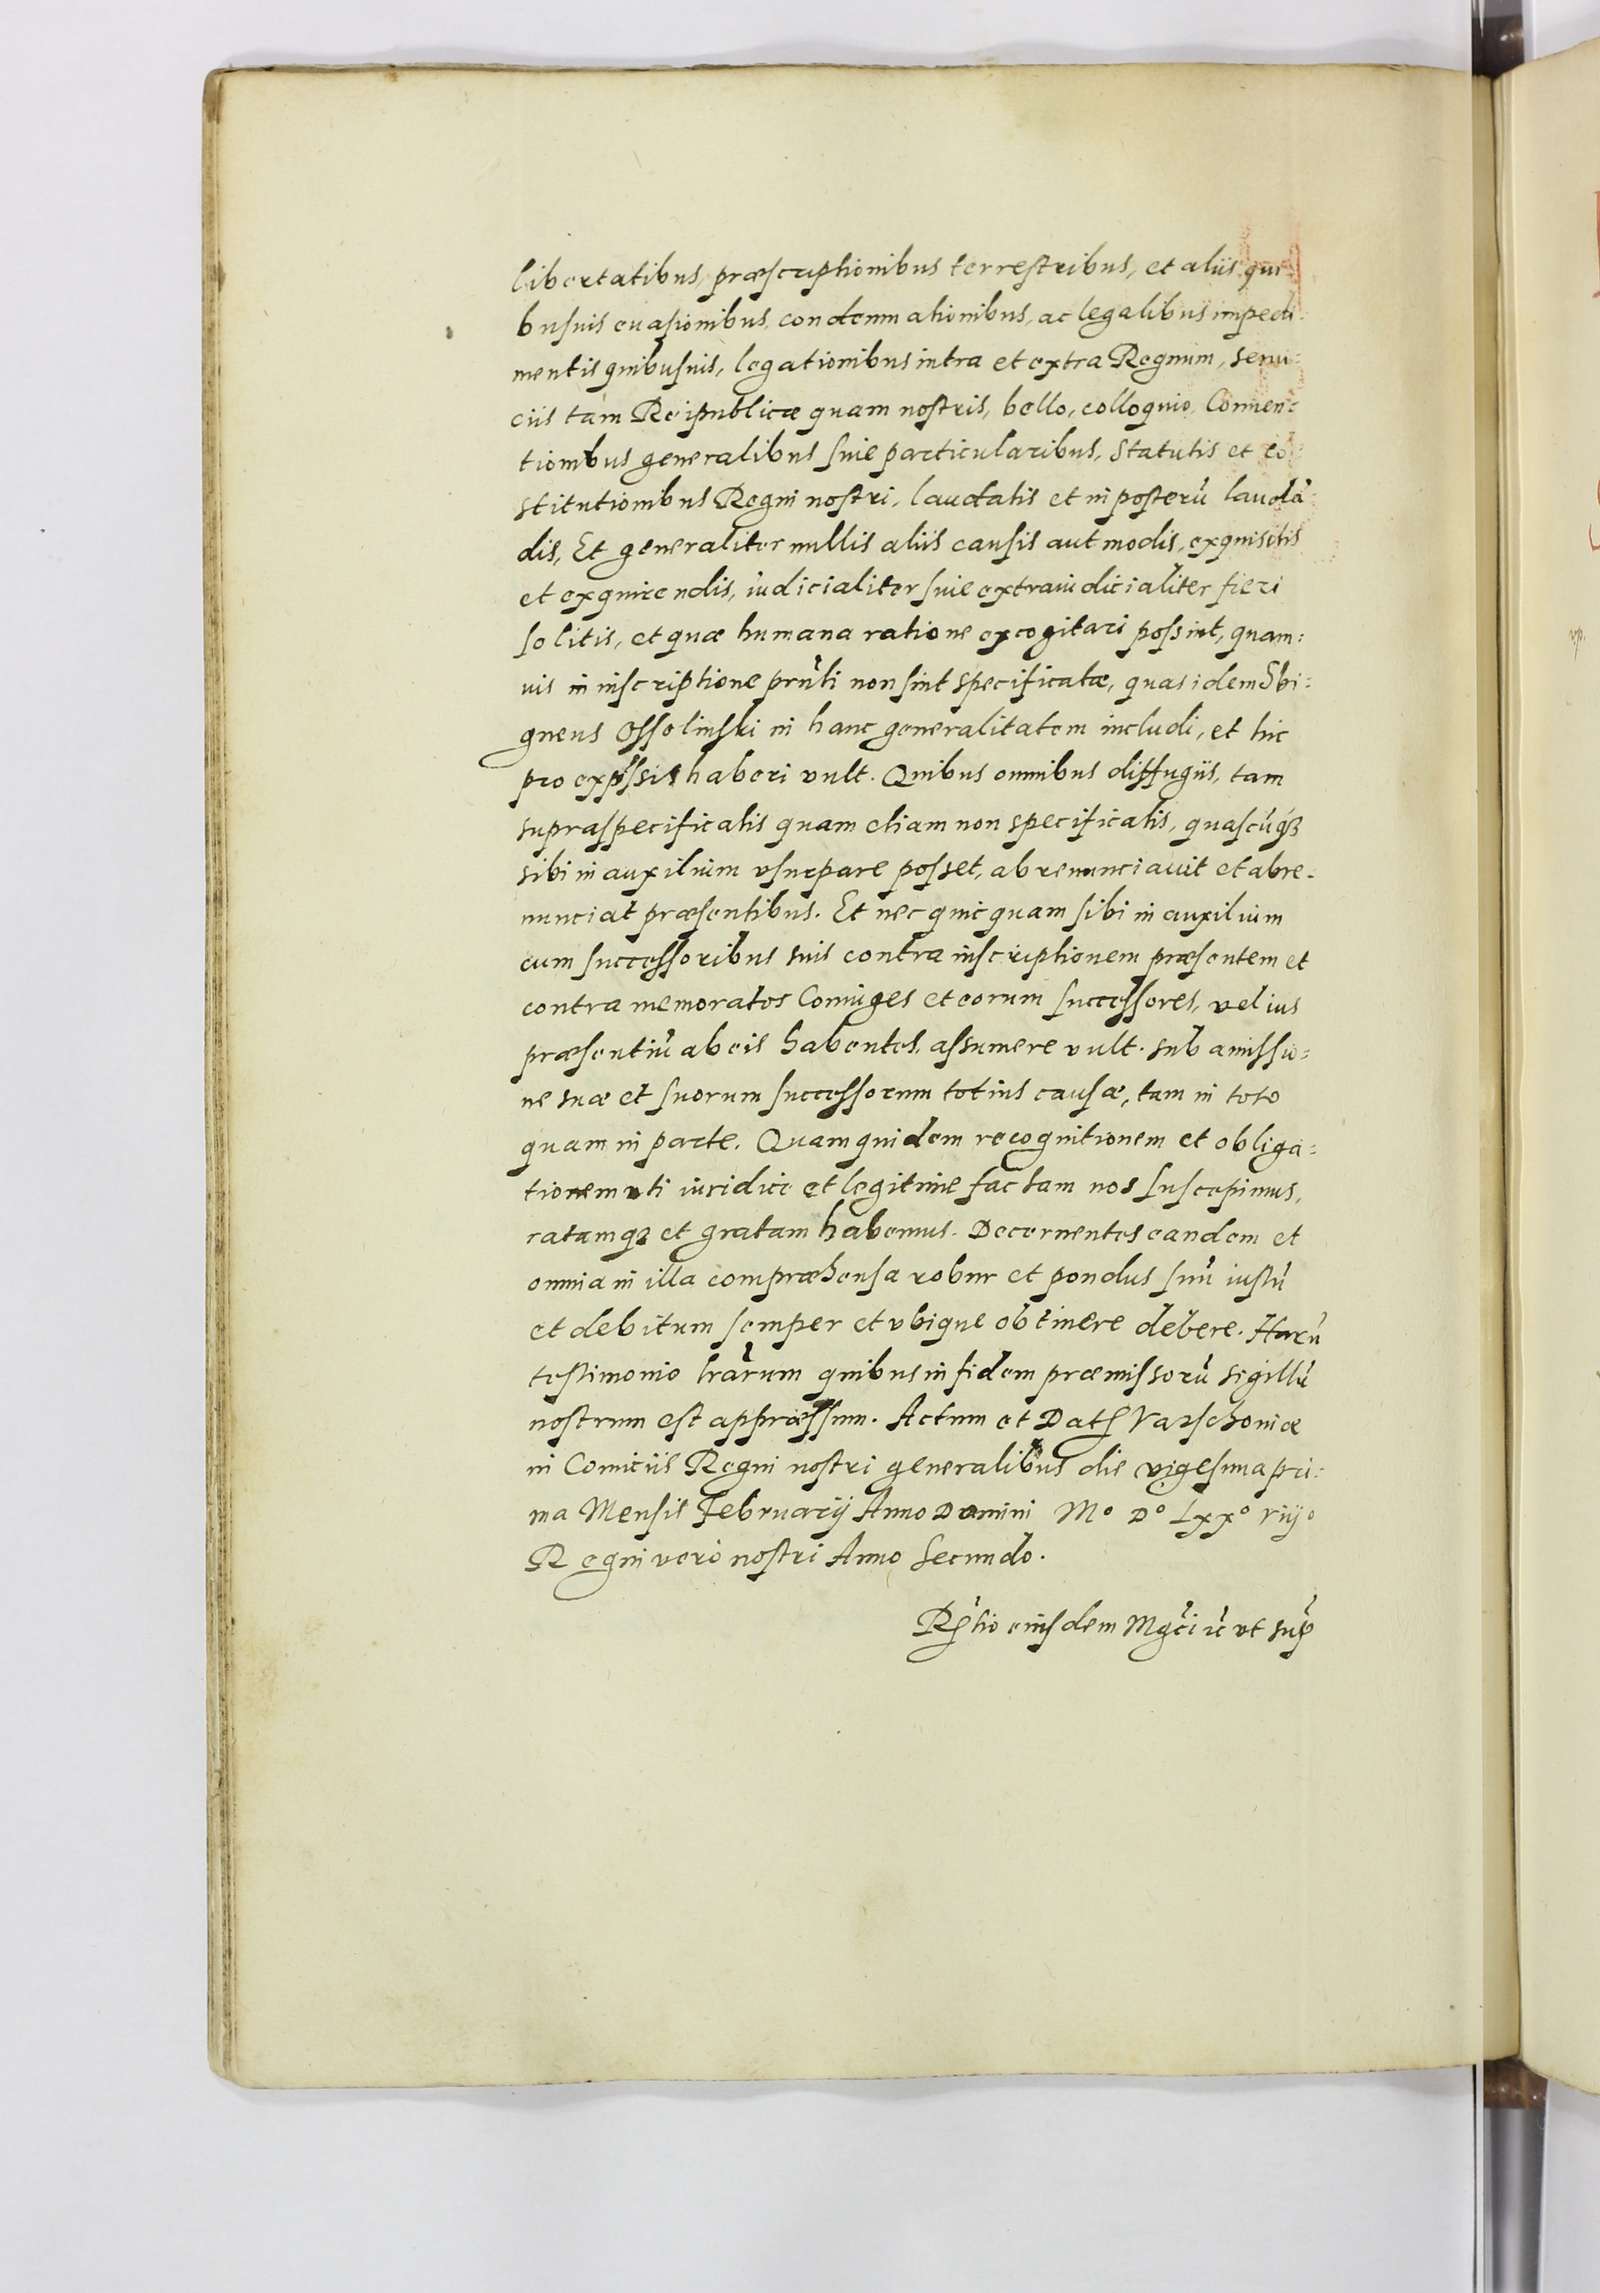 libertatibus, præscriptionibus terrestribus, et aliis qui=
busuis euasionibus, condemnationibus, ac legalibus impedi=
mentis quibusuis, legationibus intra et extra Regnum, serui=
ciis tam Reipublicæ quam nostris, bello, colloquio, Conuen=
tionibus generalibus siue particularibus, statutis et cō
stitutionibus Regni nostri, laudatis et in posterū laudā
dis, Et generaliter nullis aliis causis aut modis, exquisitis
et exquirendis, iudicialiter siue extraiudicialiter fieri
solitis, et quæ humana ratione excogitari possint, quam=
uis in inscriptione prnti non sint specificatæ, quas idem Sbi=
gneus Ossolinski in hanc generalitatem includi, et hic
pro expssis haberi vult. Quibus omnibus diffugiis, tam
supraspecificatis quam etiam non specificatis, quascūqꝫ
sibi in auxilium vsurpare posset, abrenunciauit et abre=
nunciat præsentibus. Et nec quicquam sibi in auxilium
cum successoribus suis contra inscriptionem præsentem et
contra memoratos Coniuges et eorum successores, vel ius
præsentiū ab eis habentes, assumere vult. sub amissio=
ne suæ et suorum successorum totius causæ, tam in toto
quam in parte. Quam quidem recognitionem et obliga=
tionem uti iuridice et legitime factam nos suscepimus,
ratamqꝫ et gratam habemus. Decernentes eandem et
omnia in illa compræhensa robur et pondus suū iustū
et debitum semper et vbique obtinere debere. Harū
testimonio lrārum quibus in fidem præmissorū sigillū
nostrum est appræssum. Actum et Datꝭ Varschouiæ
in Comiciis Regni nostri generalibus die vigesima pri=
ma Mensis Februarij Anno Domini Mº Dº Lxxº viijº
Regni vero nostri Anno Secundo.
Rꝭtio eiusdem Mgci ic̄ vt supꝭ